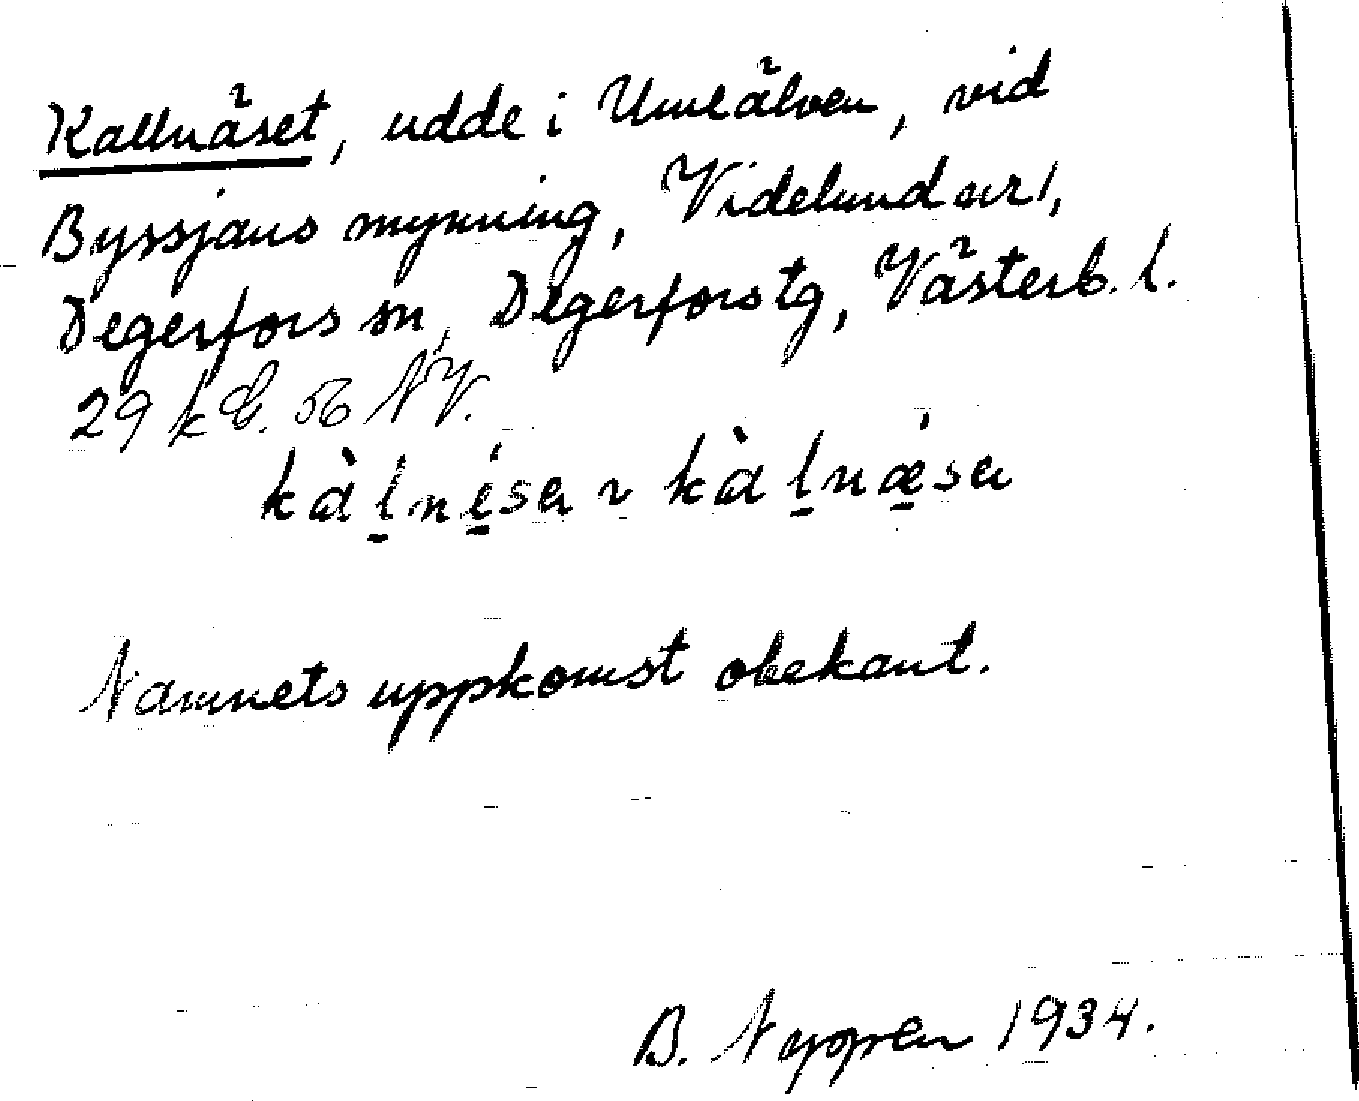 Kallnäset, udde i Umeälven, vid
Byssjans mynning, Videlund nr 1,
Degerfors sn, Degerfors tg, Västerb. l.
29 k G. 56 NV.
kàlnésa ~ kàlnǽsa
Namnets uppkomst obekant.
B. Nygren 1934.